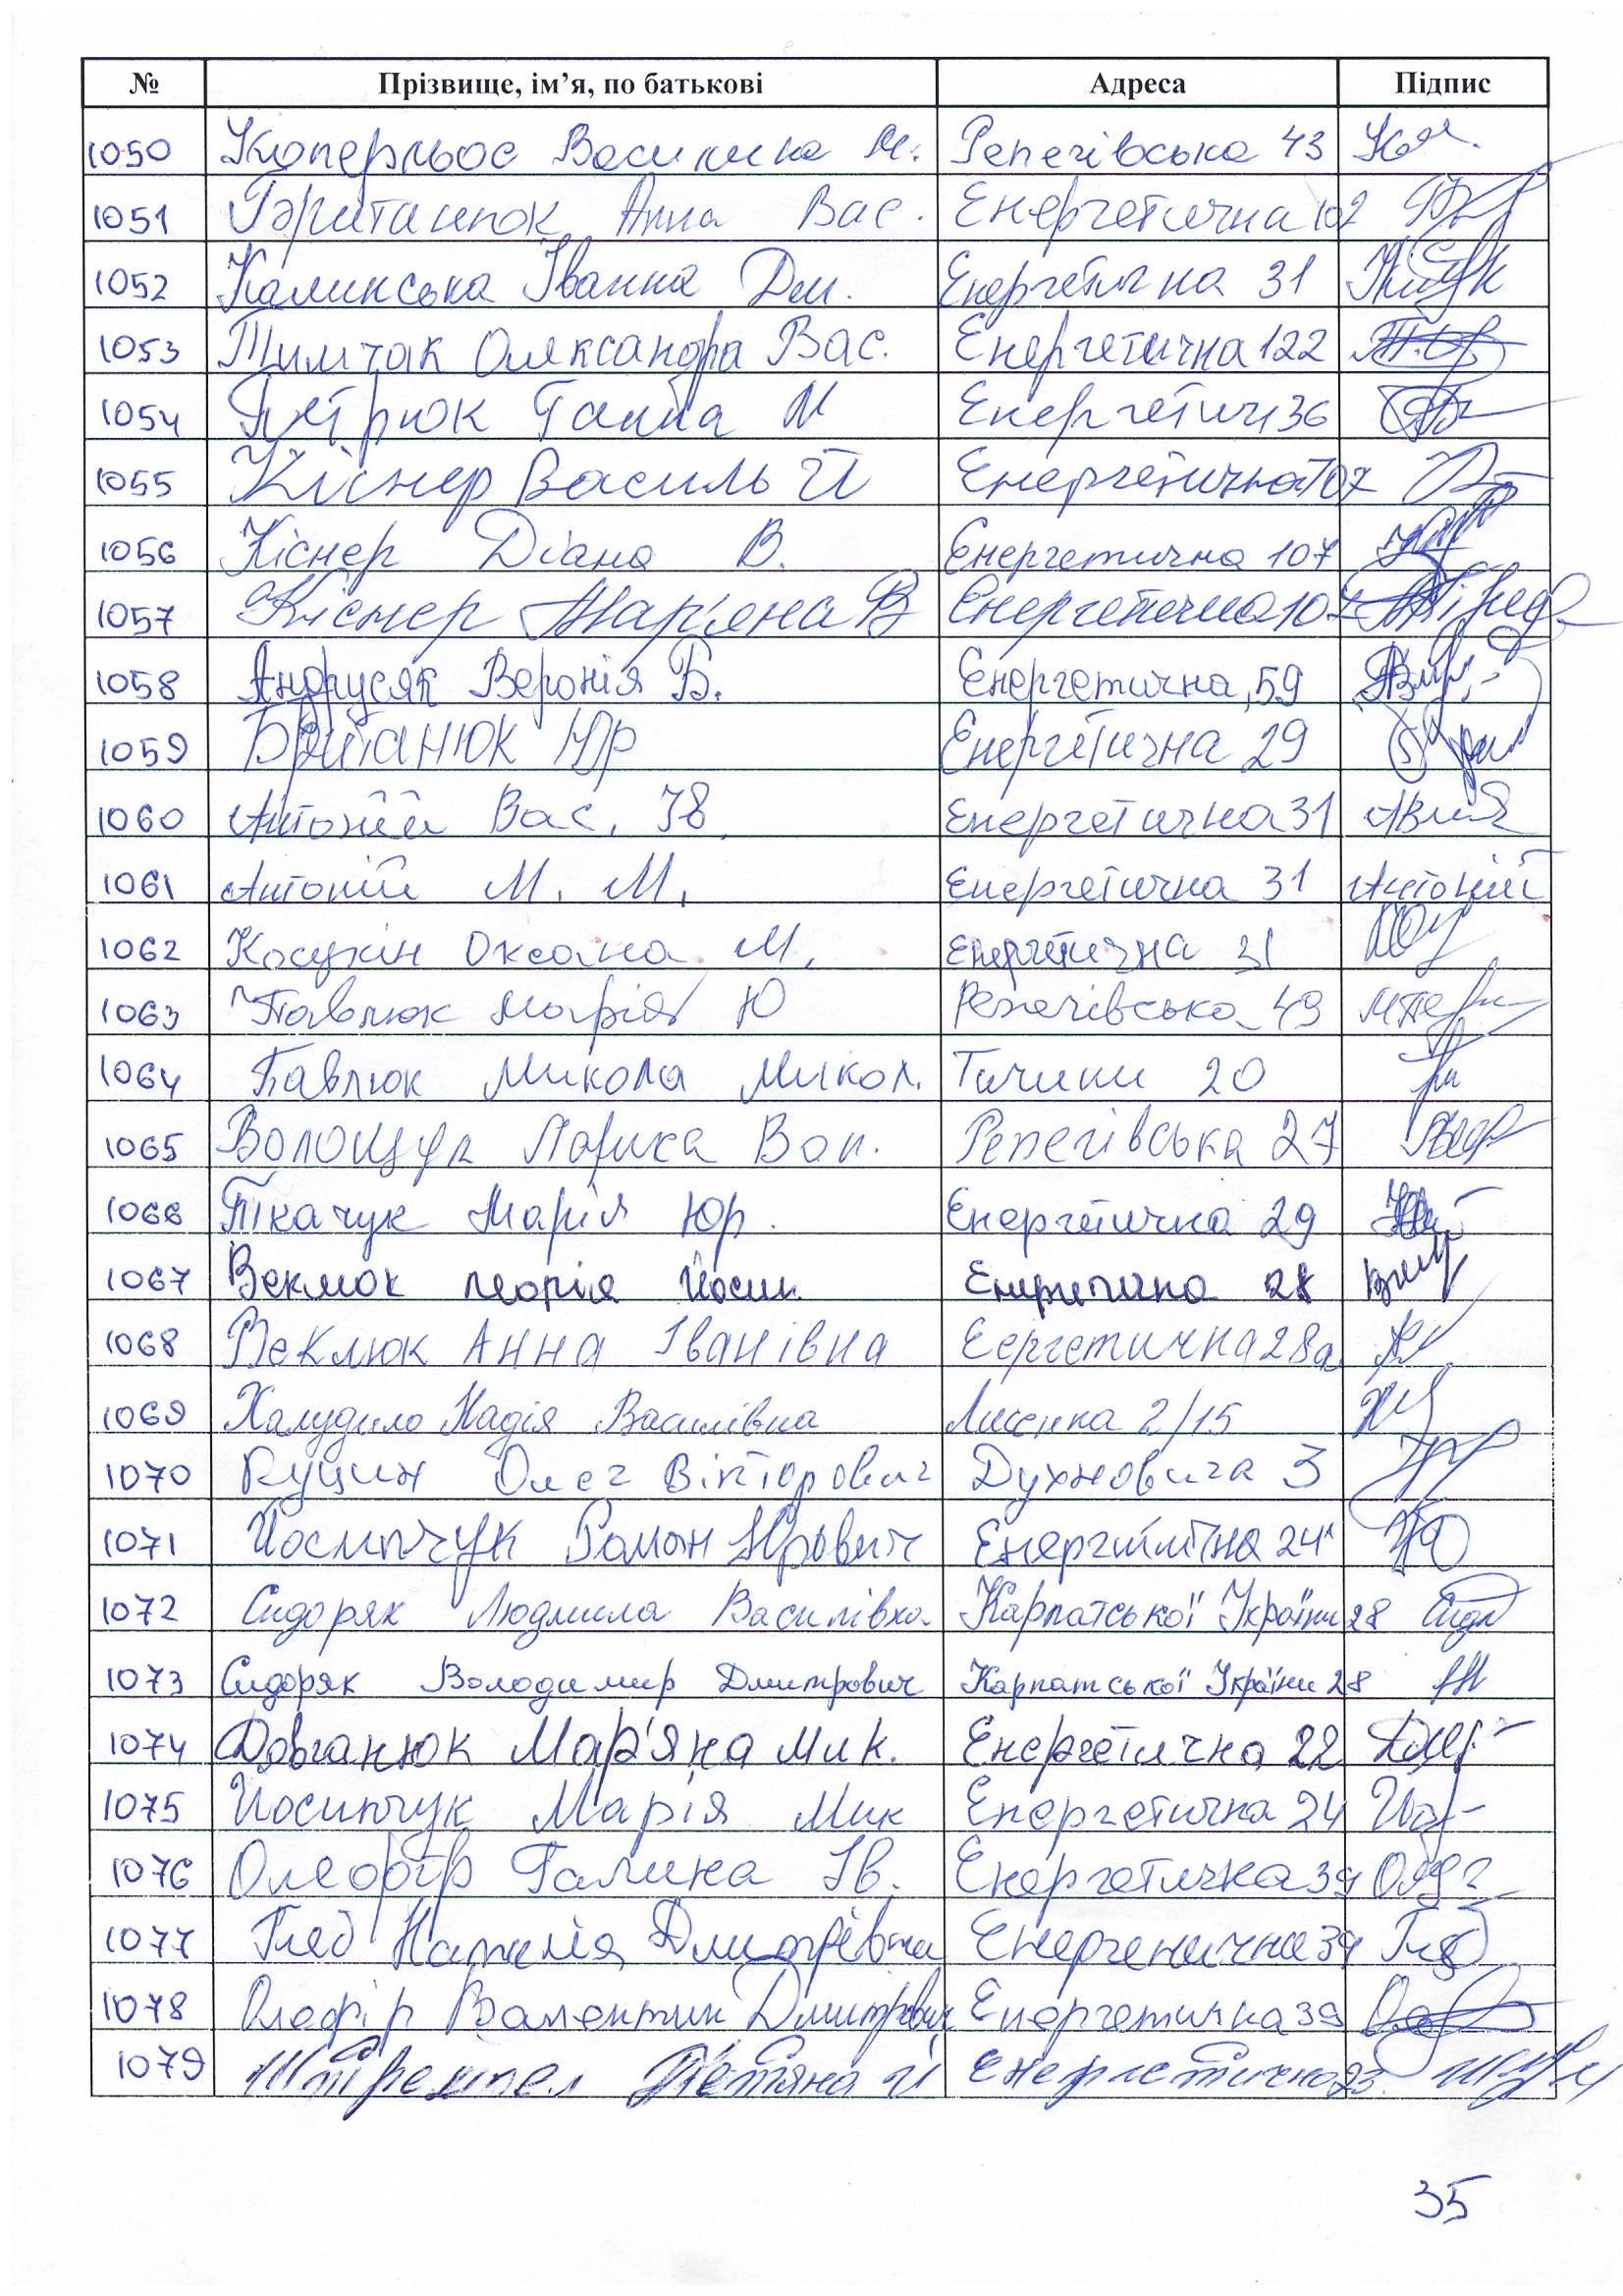 № Прізвище, ім’я, по батькові Адреса Підпис
1050 Василина М. Репегівська 43
1051 Анна Вас. Енергетична 102
1052 Калинська Іванна Дм. Енергетична 31
1053 Тимчак Олександра Вас. Енергетична 122
1054 Петрюк Ганна М Енергетич 36
1055 Кіснер Василь Й Енергетична 107
1056 Кіснер Діана В. Енергетична 107
1057 Кіснер Мар'яна В Енергетична 107
1058 Андрусяк Веронія Б. Енергетична, 59
1059 Британюк Юр Енергетична 29
1060 Антоній Вас. Ів. Енергетична 31
1061 Антоній М. М. Енергетична 31 Антоній
1062 Оксана М. Енергетична 31
1063 Павлюк Марія Ю Репегівська 49
1064 Павлюк Микола Микол. Тичини 20
1065 Волощук Лариса Вас. Репегівська 27
1066 Ткачук Марія Юр. Енергетична 29
1067 Веклюк Марія Йосип. Енергетична 28
1068 Веклюк Анна Іванівна Еергетична 28а
1069 Надія Василівна Лисенка 2/15
1070 Руцин Олег Вікторович Духновича 3
1071 Йосипчук Роман Юрович Енергетична 24
1072 Сидоряк Людмила Василівна Карпатської України 28
1073 Сидоряк Володимир Дмитрович Карпатської України 28
1074 Довганюк Мар'яна Мик. Енергетична 22
1075 Йосипчук Марія Мик Енергетична 24
1076 Олефір Галина Ів. Енергетична 39
1077 Глеб Наталія Дмитрівна Енергенична 39
1078 Олефір Валентин Дмитрович Енергетична 39
1079 Тетяна Й Енергетична 23
35